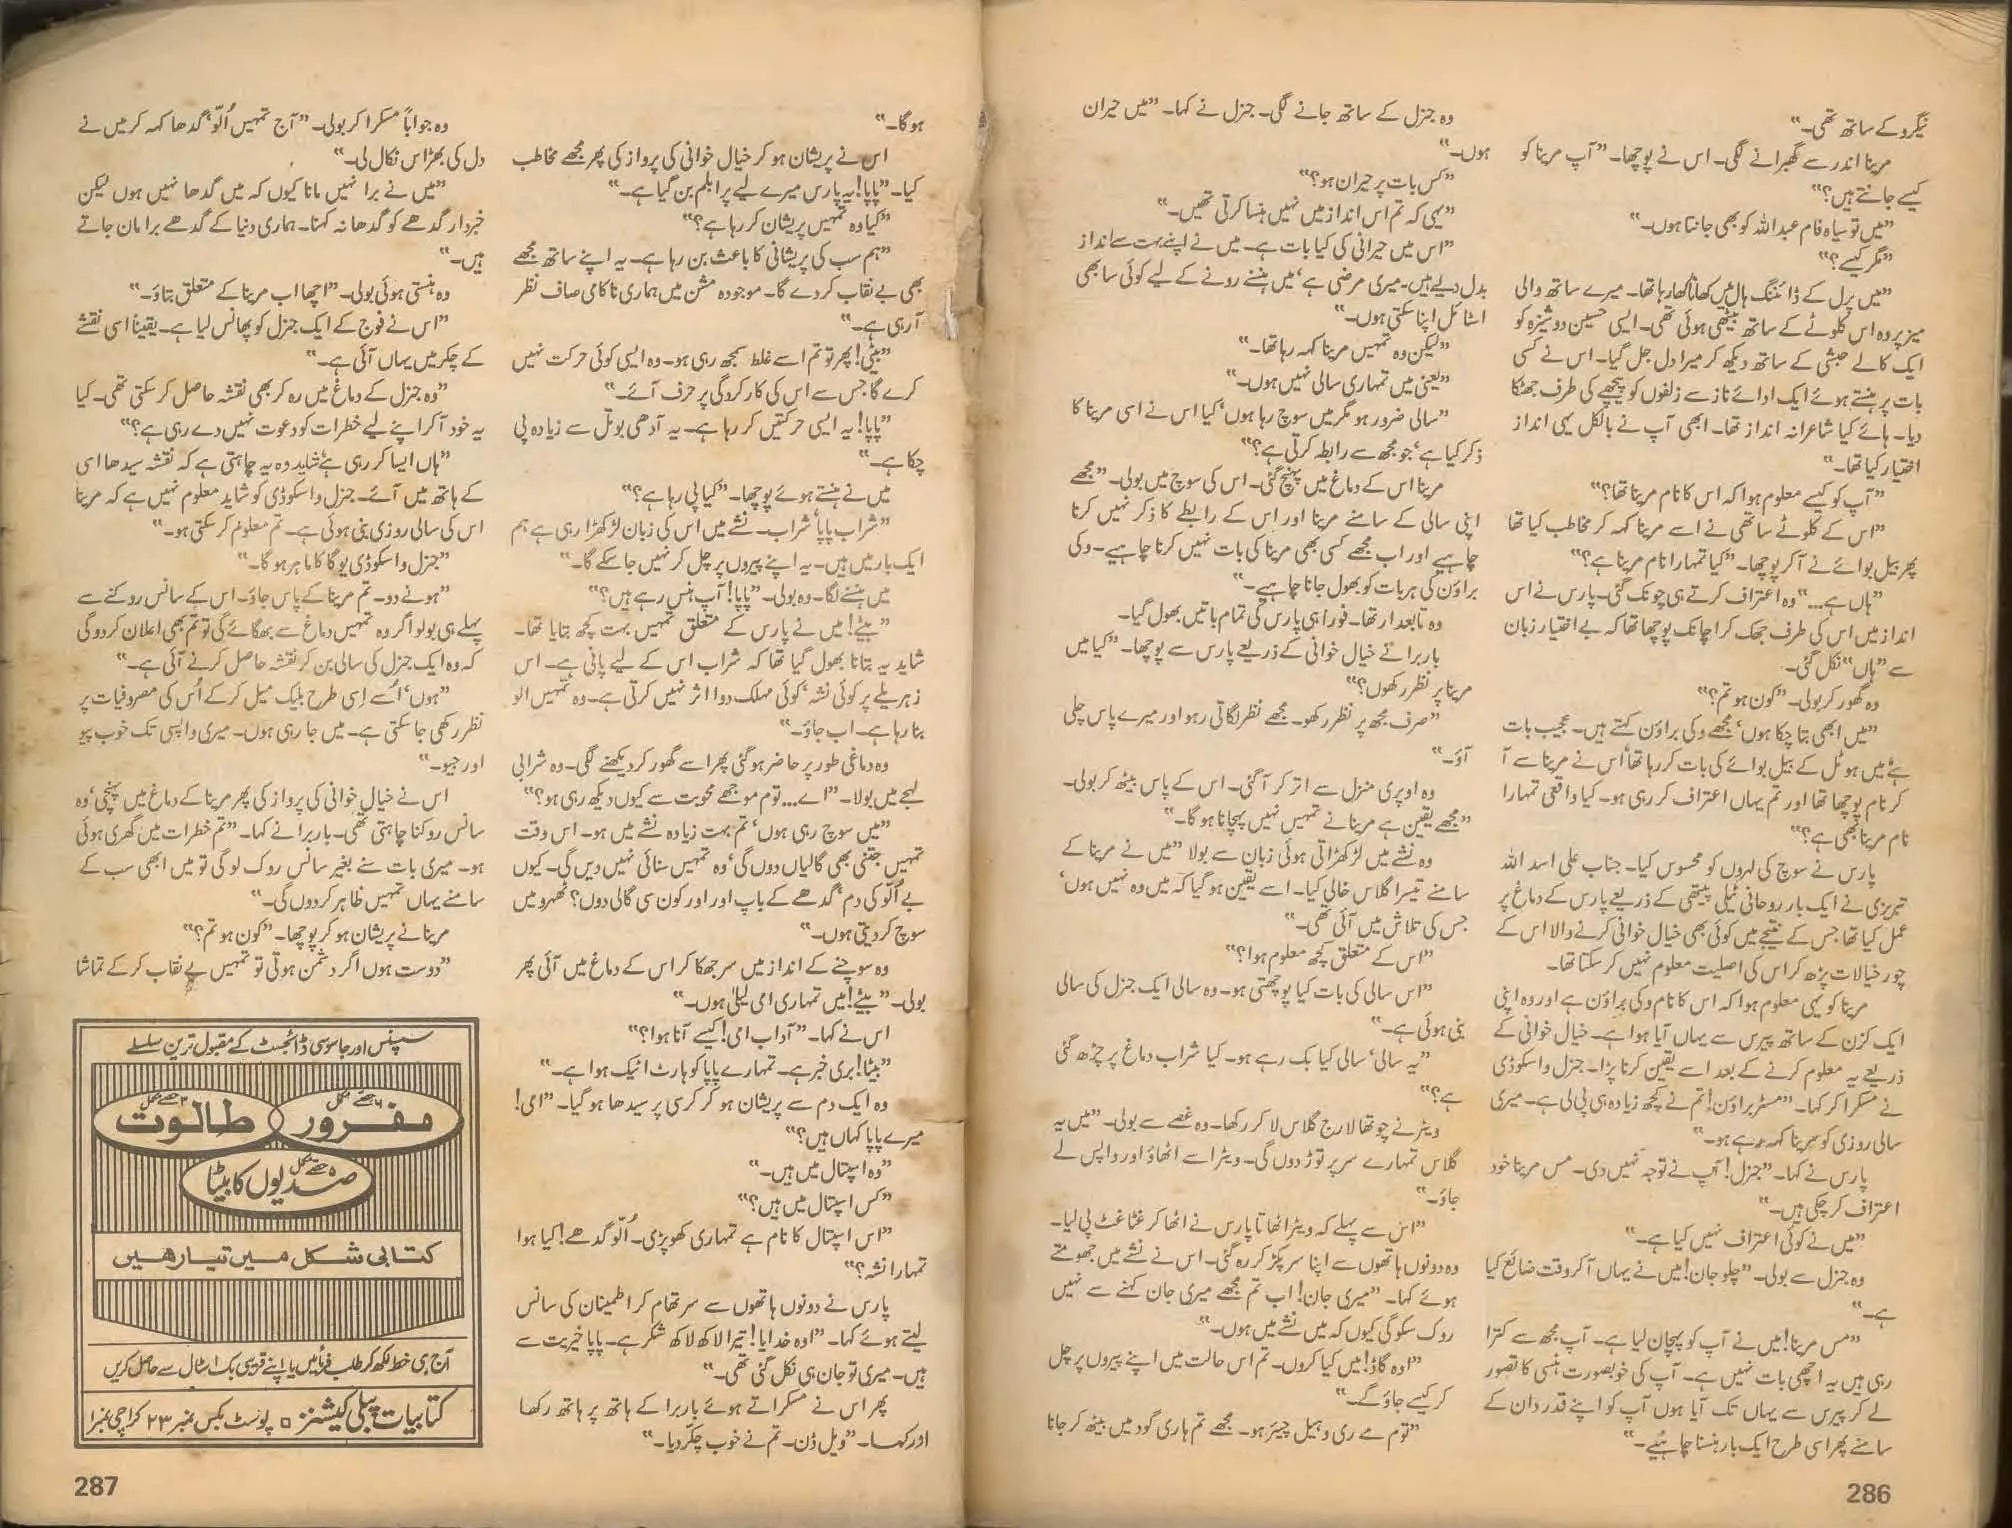 نیگرو کے ساتھ تھی۔“
مرینا اندر سے گھبرانے لگی۔ اس نے پوچھا۔ ”آپ مرینا کو
کیسے جانتے ہیں؟“
”میں تو سیاہ فام عبداللہ کو بھی جانتا ہوں۔“
”مگر کیسے؟“
”میں پرل کے ڈائننگ ہال میں کھانا کھا رہا تھا۔ میرے ساتھ والی
میز پر وہ اس کلوٹے کے ساتھ بیٹھی ہوئی تھی۔ ایسی حسین دوشیزہ کو
ایک کالے حبشی کے ساتھ دیکھ کر میرا دل جل گیا۔ اس نے کسی
بات پر ہنستے ہوئے ایک ادائے ناز سے زلفوں کو پیچھے کی طرف جھٹکا
دیا۔ ہائے کیا شاعرانہ انداز تھا۔ ابھی آپ نے بالکل یہی انداز
اختیار کیا تھا۔“
”آپ کو کیسے معلوم ہوا کہ اس کا نام مرینا تھا؟“
”اس کے کلوٹے ساتھی نے اسے مرینا کہہ کر مخاطب کیا تھا
پھر بیل بوائے نے آکر پوچھا۔ ”کیا تمہارا نام مرینا ہے؟“
”ہاں ہے...“ وہ اعتراف کرتے ہی چونک گئی۔ پارس نے اس
انداز میں اس کی طرف جھک کر اچانک پوچھا تھا کہ بے اختیار زبان
سے ”ہاں“ نکل گئی۔
وہ گھور کر بولی۔ ”کون ہو تم؟“
”میں ابھی بتا چکا ہوں‘ مجھے وکی براؤن کہتے ہیں۔ عجیب بات
ہے‘ میں ہوٹل کے بیل بوائے کی بات کر رہا تھا‘ اس نے مرینا سے آ
کر نام پوچھا تھا اور تم یہاں اعتراف کر رہی ہو۔ کیا واقعی تمہارا
نام مرینا بھی ہے؟“
پارس نے سوچ کی لہروں کو محسوس کیا۔ جناب علی اسد اللہ
تبریزی نے ایک بار روحانی ٹیلی پیتھی کے ذریعے پارس کے دماغ پر
عمل کیا تھا جس کے نتیجے میں کوئی بھی خیال خوانی کرنے والا اس کے
چور خیالات پڑھ کر اس کی اصلیت معلوم نہیں کر سکتا تھا۔
مرینا کو یہی معلوم ہوا کہ اس کا نام وکی براؤن ہے اور وہ اپنی
ایک کزن کے ساتھ پیرس سے یہاں آیا ہوا ہے۔ خیال خوانی کے
ذریعے یہ معلوم کرنے کے بعد اسے یقین کرنا پڑا۔ جنرل واسکوڈی
نے مسکرا کر کہا۔ ”مسٹر براؤن! تم نے کچھ زیادہ ہی پی لی ہے۔ میری
سالی روزی کو مرینا کہہ رہے ہو۔“
پارس نے کہا۔ ”جنرل! آپ نے توجہ نہیں دی۔ مس مرینا خود
اعتراف کر چکی ہیں۔“
”میں نے کوئی اعتراف نہیں کیا ہے۔“
وہ جنرل سے بولی۔ ”چلو جان! میں نے یہاں آکر وقت ضائع کیا
ہے۔“
”مس مرینا! میں نے آپ کو پہچان لیا ہے۔ آپ مجھ سے کترا
رہی ہیں یہ اچھی بات نہیں ہے۔ آپ کی خوبصورت ہنسی کا تصور
لے کر پیرس سے یہاں تک آیا ہوں آپ کو اپنے قدردان کے
سامنے پھر اسی طرح ایک بار ہنسنا چاہئیے۔“
وہ جنرل کے ساتھ جانے لگی۔ جنرل نے کہا۔ ”میں حیران
ہوں۔“
”کس بات پر حیران ہو؟“
”یہی کہ تم اس انداز میں نہیں ہنسا کرتی تھیں۔“
”اس میں حیرانی کی کیا بات ہے۔ میں نے اپنے بہت سے انداز
بدل دیے ہیں۔ میری مرضی ہے‘ میں ہنسنے رونے کے لیے کوئی سا بھی
اسٹائل اپنا سکتی ہوں۔“
”لیکن وہ تمہیں مرینا کہہ رہا تھا۔“
”یعنی میں تمہاری سالی نہیں ہوں۔“
”سالی ضرور ہو مگر میں سوچ رہا ہوں‘ کیا اس نے اسی مرینا کا
ذکر کیا ہے‘ جو مجھ سے رابطہ کرتی ہے؟“
مرینا اس کے دماغ میں پہنچ گئی۔ اس کی سوچ میں بولی۔ ”مجھے
اپنی سالی کے سامنے مرینا اور اس کے رابطے کا ذکر نہیں کرنا
چاہیے اور اب مجھے کسی بھی مرینا کی بات نہیں کرنا چاہیے۔ وکی
براؤن کی ہر بات کو بھول جانا چاہیے۔“
وہ تابعدار تھا۔ فوراً ہی پارس کی تمام باتیں بھول گیا۔
باربرا نے خیال خوانی کے ذریعے پارس سے پوچھا۔ ”کیا میں
مرینا پر نظر رکھوں؟“
”صرف مجھ پر نظر رکھو۔ مجھے نظر لگاتی رہو اور میرے پاس چلی
آؤ۔“
وہ اوپری منزل سے اتر کر آگئی۔ اس کے پاس بیٹھ کر بولی۔
”مجھے یقین ہے مرینا نے تمہیں نہیں پہچانا ہو گا۔“
وہ نشے میں لڑکھڑاتی ہوئی زبان سے بولا ”میں نے مرینا کے
سامنے تیسرا گلاس خالی کیا۔ اسے یقین ہو گیا کہ میں وہ نہیں ہوں‘
جس کی تلاش میں آئی تھی۔“
”اس کے متعلق کچھ معلوم ہوا؟“
”اس سالی کی بات کیا پوچھتی ہو۔ وہ سالی ایک جنرل کی سالی
بنی ہوئی ہے۔“
”یہ سالی‘ سالی کیا بک رہے ہو۔ کیا شراب دماغ پر چڑھ گئی
ہے؟“
ویٹر نے چوتھا لارج گلاس لا کر رکھا۔ وہ غصے سے بولی۔ ”میں یہ
گلاس تمہارے سر پر توڑ دوں گی۔ ویٹر اسے اٹھاؤ اور واپس لے
جاؤ۔“
”اس سے پہلے کہ ویٹر اٹھاتا پارس نے اٹھا کر غٹاغٹ پی لیا۔
وہ دونوں ہاتھوں سے اپنا سر پکڑ کر رہ گئی۔ اس نے نشے میں جھومتے
ہوئے کہا۔ ”میری جان! اب تم مجھے میری جان کہنے سے نہیں
روک سکو گی کیوں کہ میں نشے میں ہوں۔“
”اوہ گاڈ! میں کیا کروں۔ تم اس حالت میں اپنے پیروں پر چل
کر کیسے جاؤ گے۔“
”توم مے ری وہیل چیئر ہو۔ مجھے تم ہاری گود میں بیٹھ کر جانا
286
ہوگا۔“
اس نے پریشان ہو کر خیال خوانی کی پرواز کی پھر مجھے مخاطب
کیا۔ ”پاپا! یہ پارس میرے لیے پرابلم بن گیا ہے۔“
”کیا وہ تمہیں پریشان کر رہا ہے؟“
”ہم سب کی پریشانی کا باعث بن رہا ہے۔ یہ اپنے ساتھ مجھے
بھی بے نقاب کر دے گا۔ موجودہ مشن میں ہماری ناکامی صاف نظر
آرہی ہے۔“
”بیٹی! پھر تو تم اسے غلط سمجھ رہی ہو۔ وہ ایسی کوئی حرکت نہیں
کرے گا جس سے اس کی کارکردگی پر حرف آئے۔“
”پاپا! یہ ایسی حرکتیں کر رہا ہے۔ یہ آدھی بوتل سے زیادہ پی
چکا ہے۔“
میں نے ہنستے ہوئے پوچھا۔ ”کیا پی رہا ہے؟“
”شراب پاپا‘ شراب۔ نشے میں اس کی زبان لڑکھڑا رہی ہے ہم
ایک بار میں ہیں۔ یہ اپنے پیروں پر چل کر نہیں جا سکے گا۔“
میں ہنسنے لگا۔ وہ بولی۔ ”پاپا! آپ ہنس رہے ہیں؟“
”بیٹے! میں نے پارس کے متعلق تمہیں بہت کچھ بتایا تھا۔
شاید یہ بتانا بھول گیا تھا کہ شراب اس کے لیے پانی ہے۔ اس
زہریلے پر کوئی نشہ‘ کوئی مہلک دوا اثر نہیں کرتی ہے۔ وہ تمہیں الو
بنا رہا ہے۔ اب جاؤ۔“
وہ دماغی طور پر حاضر ہو گئی پھر اسے گھور کر دیکھنے لگی۔ وہ شرابی
لہجے میں بولا۔ ”اے... توم موجھے محوبت سے کیوں دیکھ رہی ہو؟“
”میں سوچ رہی ہوں‘ تم بہت زیادہ نشے میں ہو۔ اس وقت
تمہیں جتنی بھی گالیاں دوں گی‘ وہ تمہیں سنائی نہیں دیں گی۔ کیوں
بے اُلّو کی دم‘ گدھے کے باپ اور اور کون سی گالی دوں؟ ٹھہرو میں
سوچ کر دیتی ہوں۔“
وہ سوچنے کے انداز میں سر جھکا کر اس کے دماغ میں آئی پھر
بولی۔ ”بیٹے! میں تمہاری امی لیلیٰ ہوں۔“
اس نے کہا۔ ”آداب امی! کیسے آنا ہوا؟“
”بیٹا! بری خبر ہے۔ تمہارے پاپا کو ہارٹ اٹیک ہوا ہے۔“
وہ ایک دم سے پریشان ہو کر کرسی پر سیدھا ہو گیا۔ ”امی!
میرے پاپا کہاں ہیں؟“
”وہ اسپتال میں ہیں۔“
”کس اسپتال میں ہیں؟“
”اس اسپتال کا نام ہے تمہاری کھوپڑی۔ اُلّو گدھے! کیا ہوا
تمہارا نشہ؟“
پارس نے دونوں ہاتھوں سے سر تھام کر اطمینان کی سانس
لیتے ہوئے کہا۔ ”اوہ خدایا! تیرا لاکھ لاکھ شکر ہے۔ پاپا خیریت سے
ہیں۔ میری تو جان ہی نکل گئی تھی۔“
پھر اس نے مسکراتے ہوئے باربرا کے ہاتھ پر ہاتھ رکھا
اور کہا۔ ”ویل ڈن۔ تم نے خوب چکر دیا۔“
وہ جواباً مسکرا کر بولی۔ ”آج تمہیں اُلّو‘ گدھا کہہ کر میں نے
دل کی بھڑاس نکال لی۔“
”میں نے برا نہیں مانا کیوں کہ میں گدھا نہیں ہوں لیکن
خبردار گدھے کو گدھا نہ کہنا۔ ہماری دنیا کے گدھے برا مان جاتے
ہیں۔“
وہ ہنستی ہوئی بولی۔ ”اچھا اب مرینا کے متعلق بتاؤ۔“
”اس نے فوج کے ایک جنرل کو پھانس لیا ہے۔ یقیناً اسی نقشے
کے چکر میں یہاں آئی ہے۔“
”وہ جنرل کے دماغ میں رہ کر بھی نقشہ حاصل کر سکتی تھی۔ کیا
یہ خود آکر اپنے لیے خطرات کو دعوت نہیں دے رہی ہے؟“
”ہاں ایسا کر رہی ہے‘ شاید وہ یہ چاہتی ہے کہ نقشہ سیدھا اسی
کے ہاتھ میں آئے۔ جنرل واسکوڈی کو شاید معلوم نہیں ہے کہ مرینا
اس کی سالی روزی بنی ہوئی ہے۔ تم معلوم کر سکتی ہو۔“
”جنرل واسکوڈی یوگا کا ماہر ہو گا۔“
”ہونے دو۔ تم مرینا کے پاس جاؤ۔ اس کے سانس روکنے سے
پہلے ہی بولو اگر وہ تمہیں دماغ سے بھگائے گی تو تم بھی اعلان کر دو گی
کہ وہ ایک جنرل کی سالی بن کر نقشہ حاصل کرنے آئی ہے۔“
”ہوں‘ اُسے اِسی طرح بلیک میل کر کے اُس کی مصروفیات پر
نظر رکھی جا سکتی ہے۔ میں جا رہی ہوں۔ میری واپسی تک خوب پیو
اور جیو۔“
اس نے خیال خوانی کی پرواز کی پھر مرینا کے دماغ میں پہنچی‘ وہ
سانس روکنا چاہتی تھی۔ باربرا نے کہا۔ ”تم خطرات میں گھری ہوئی
ہو۔ میری بات سنے بغیر سانس روک لو گی تو میں ابھی سب کے
سامنے یہاں تمہیں ظاہر کر دوں گی۔“
مرینا نے پریشان ہو کر پوچھا۔ ”کون ہو تم؟“
”دوست ہوں اگر دشمن ہوتی تو تمہیں بے نقاب کر کے تماشا
سسپنس اور جاسوسی ڈائجسٹ کے مقبول ترین سلسلے
مفرور ۶ حصے مکمل
طالوت ۳ حصے مکمل
صدیوں کا بیٹا ۵ حصے مکمل
کتابی شکل میں تیار ہیں
آج ہی خط لکھ کر طلب فرمائیں یا اپنے قریبی بک اسٹال سے حاصل کریں
کتابیات پبلی کیشنز ○ پوسٹ بکس نمبر ۲۳ کراچی نمبر ۱
287